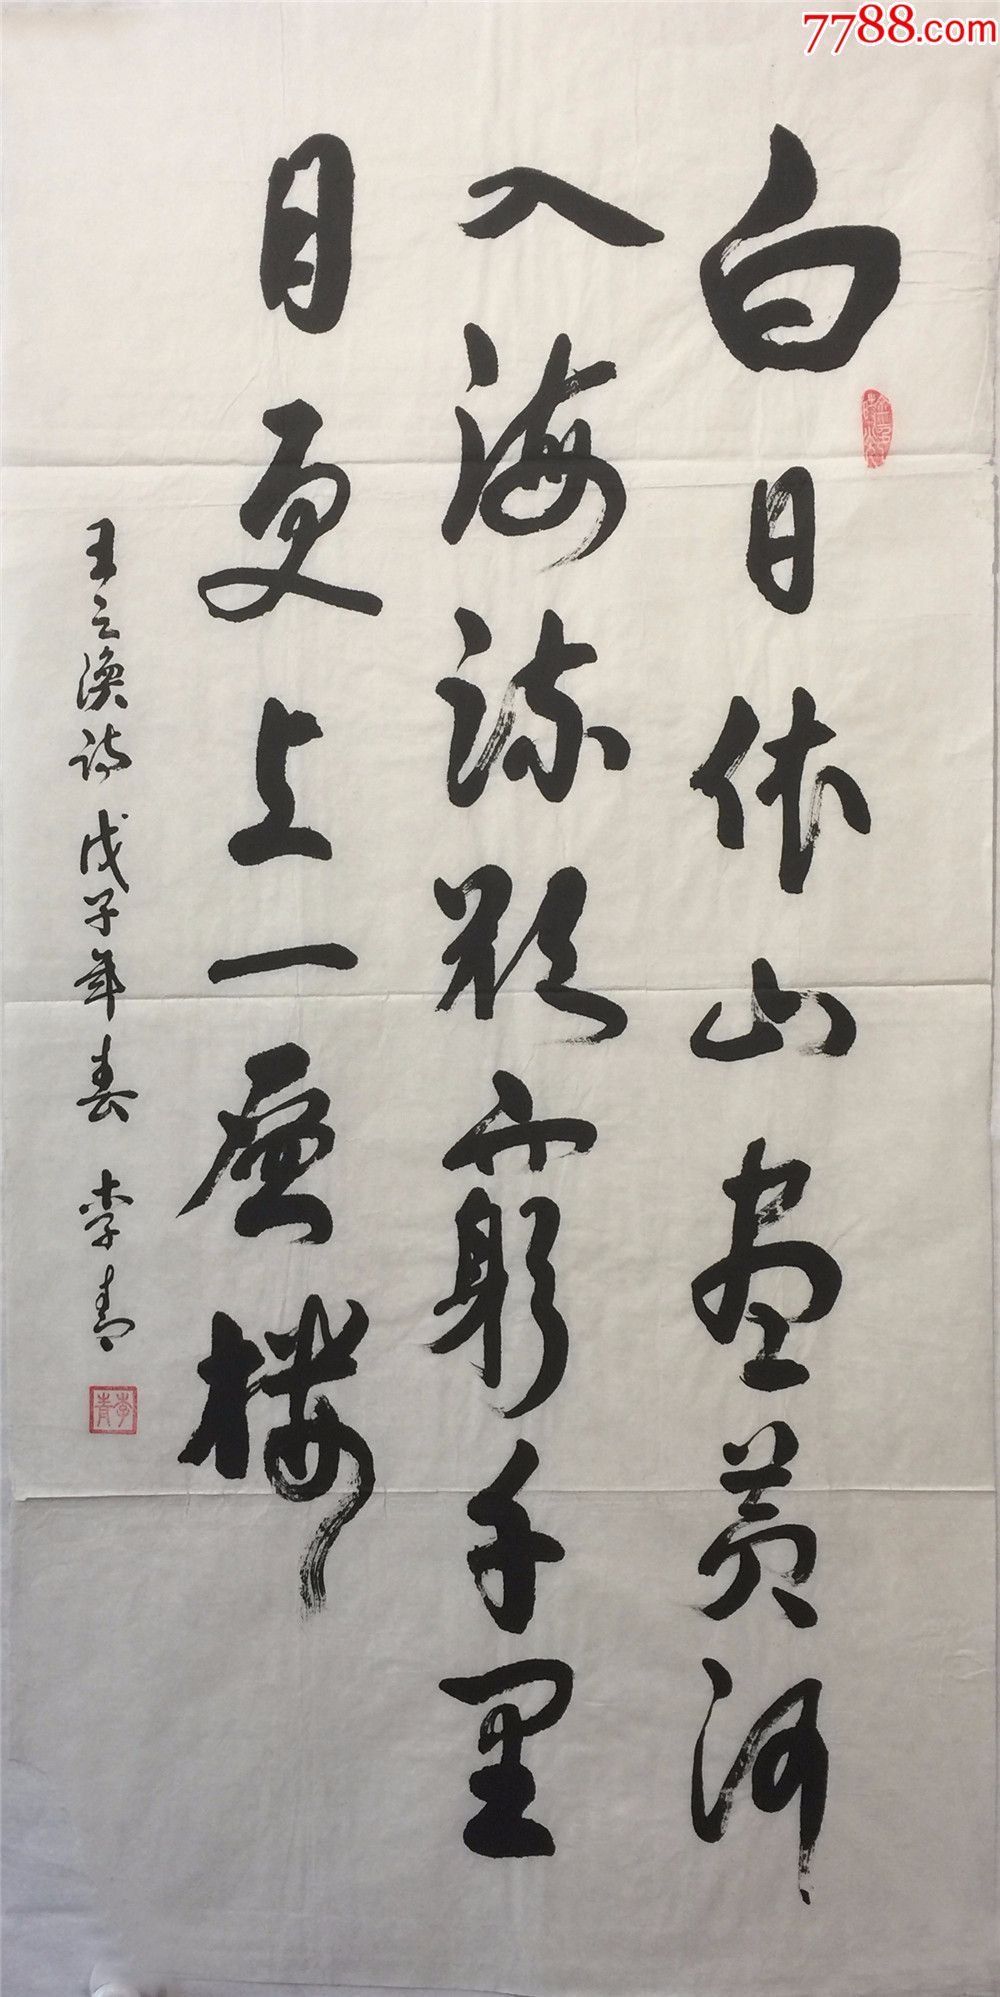 7788.com
白日依山盡黄河
入海流欲窮千里
目更上一層樓
王之渙詩戊子年春 李青
李青